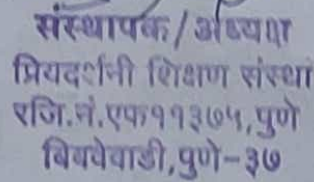 संस्थापक/अध्यक्ष
प्रियदर्शनी शिक्षण संस्था
रजि.नं.एफ११३७५,पुणे
बिबवेवाडी,पुणे-३७